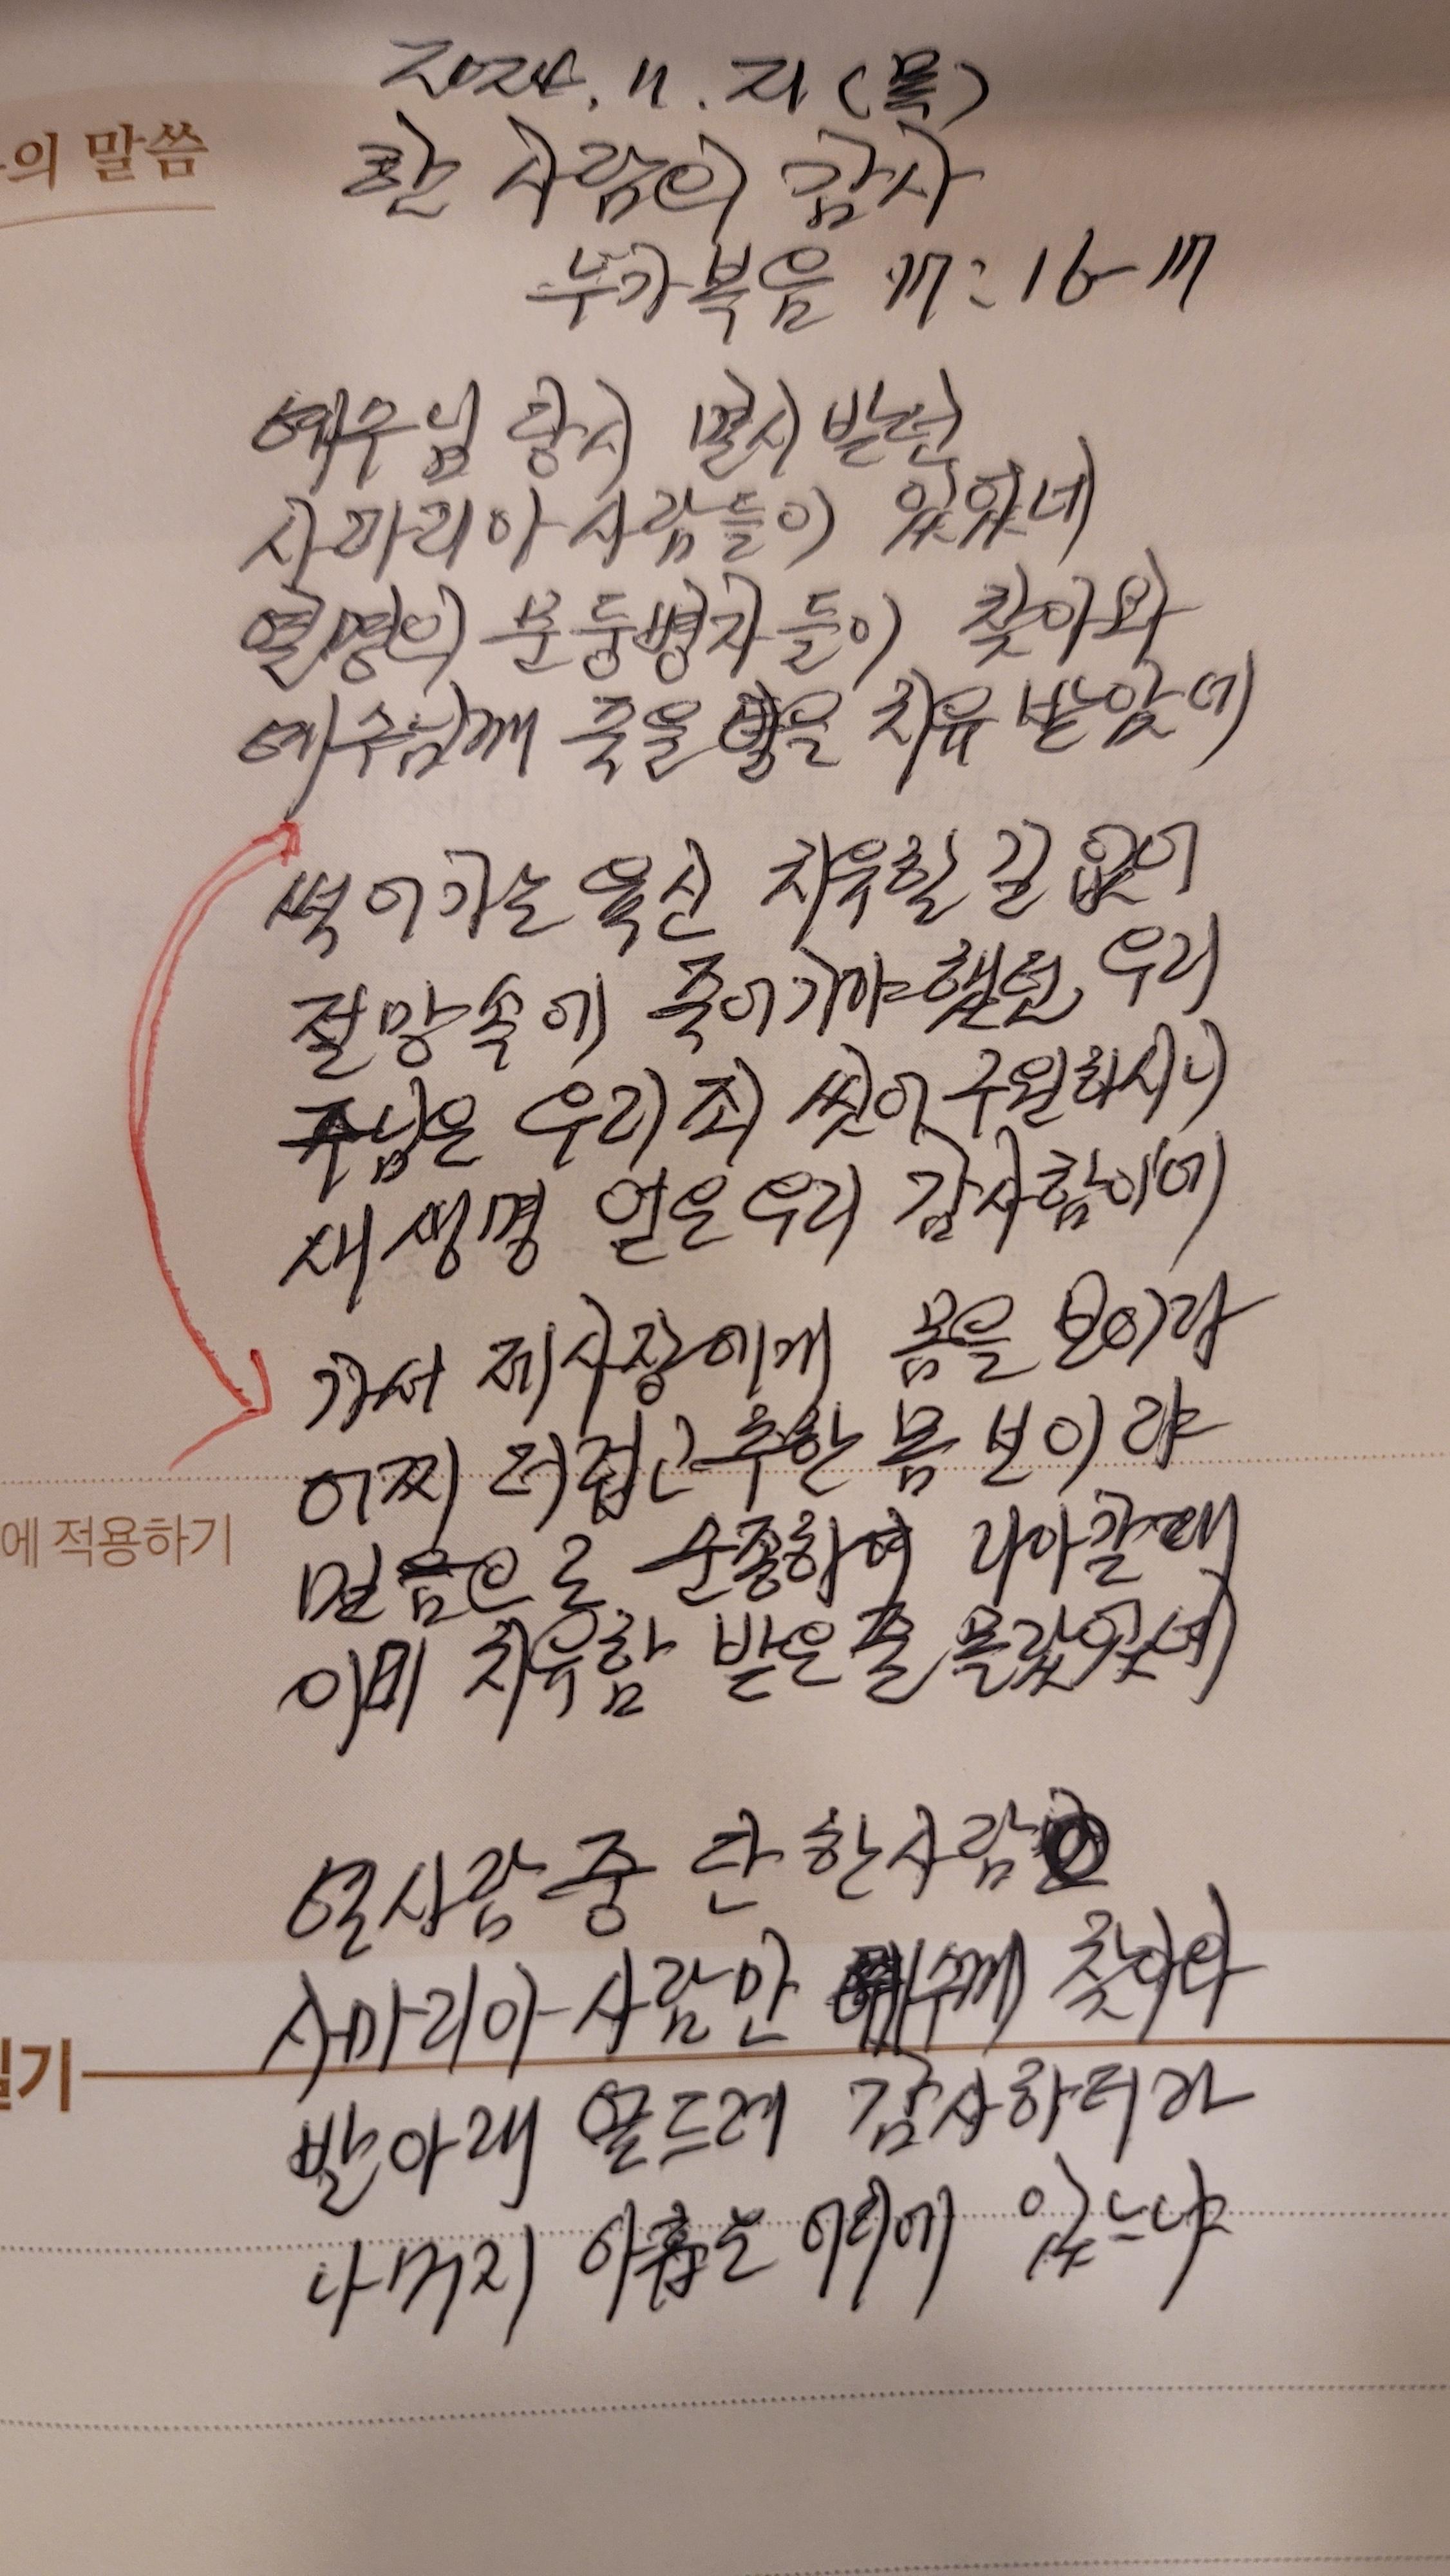 2024. 11. 21 (목)
의 말씀
한 사람의 감사
누가복음 17:16-17
예수님 당시 멸시 받던
사마리아 사람들이 있었네
열명의 문둥병자들이 찾아와
예수님께 죽을 병을 치유 받았네
썩어가는 육신 치유할 길 없어
절망속에 죽어가야했던 우리
주님은 우리 죄 씻어 구원하시니
새 생명 얻은 우리 감사함이네
가서 제사장에게 몸을 보이라
어찌 더럽고 추한 몸 보이랴
에 적용하기
믿음으로 순종하여 나아갈때
이미 치유함 받은줄 몰랐었네
열사람중 단 한사람
사마리아 사람만 예수께 찾아와
기
발아래 엎드려 감사하더라
나머지 아홉은 어디에 있느냐